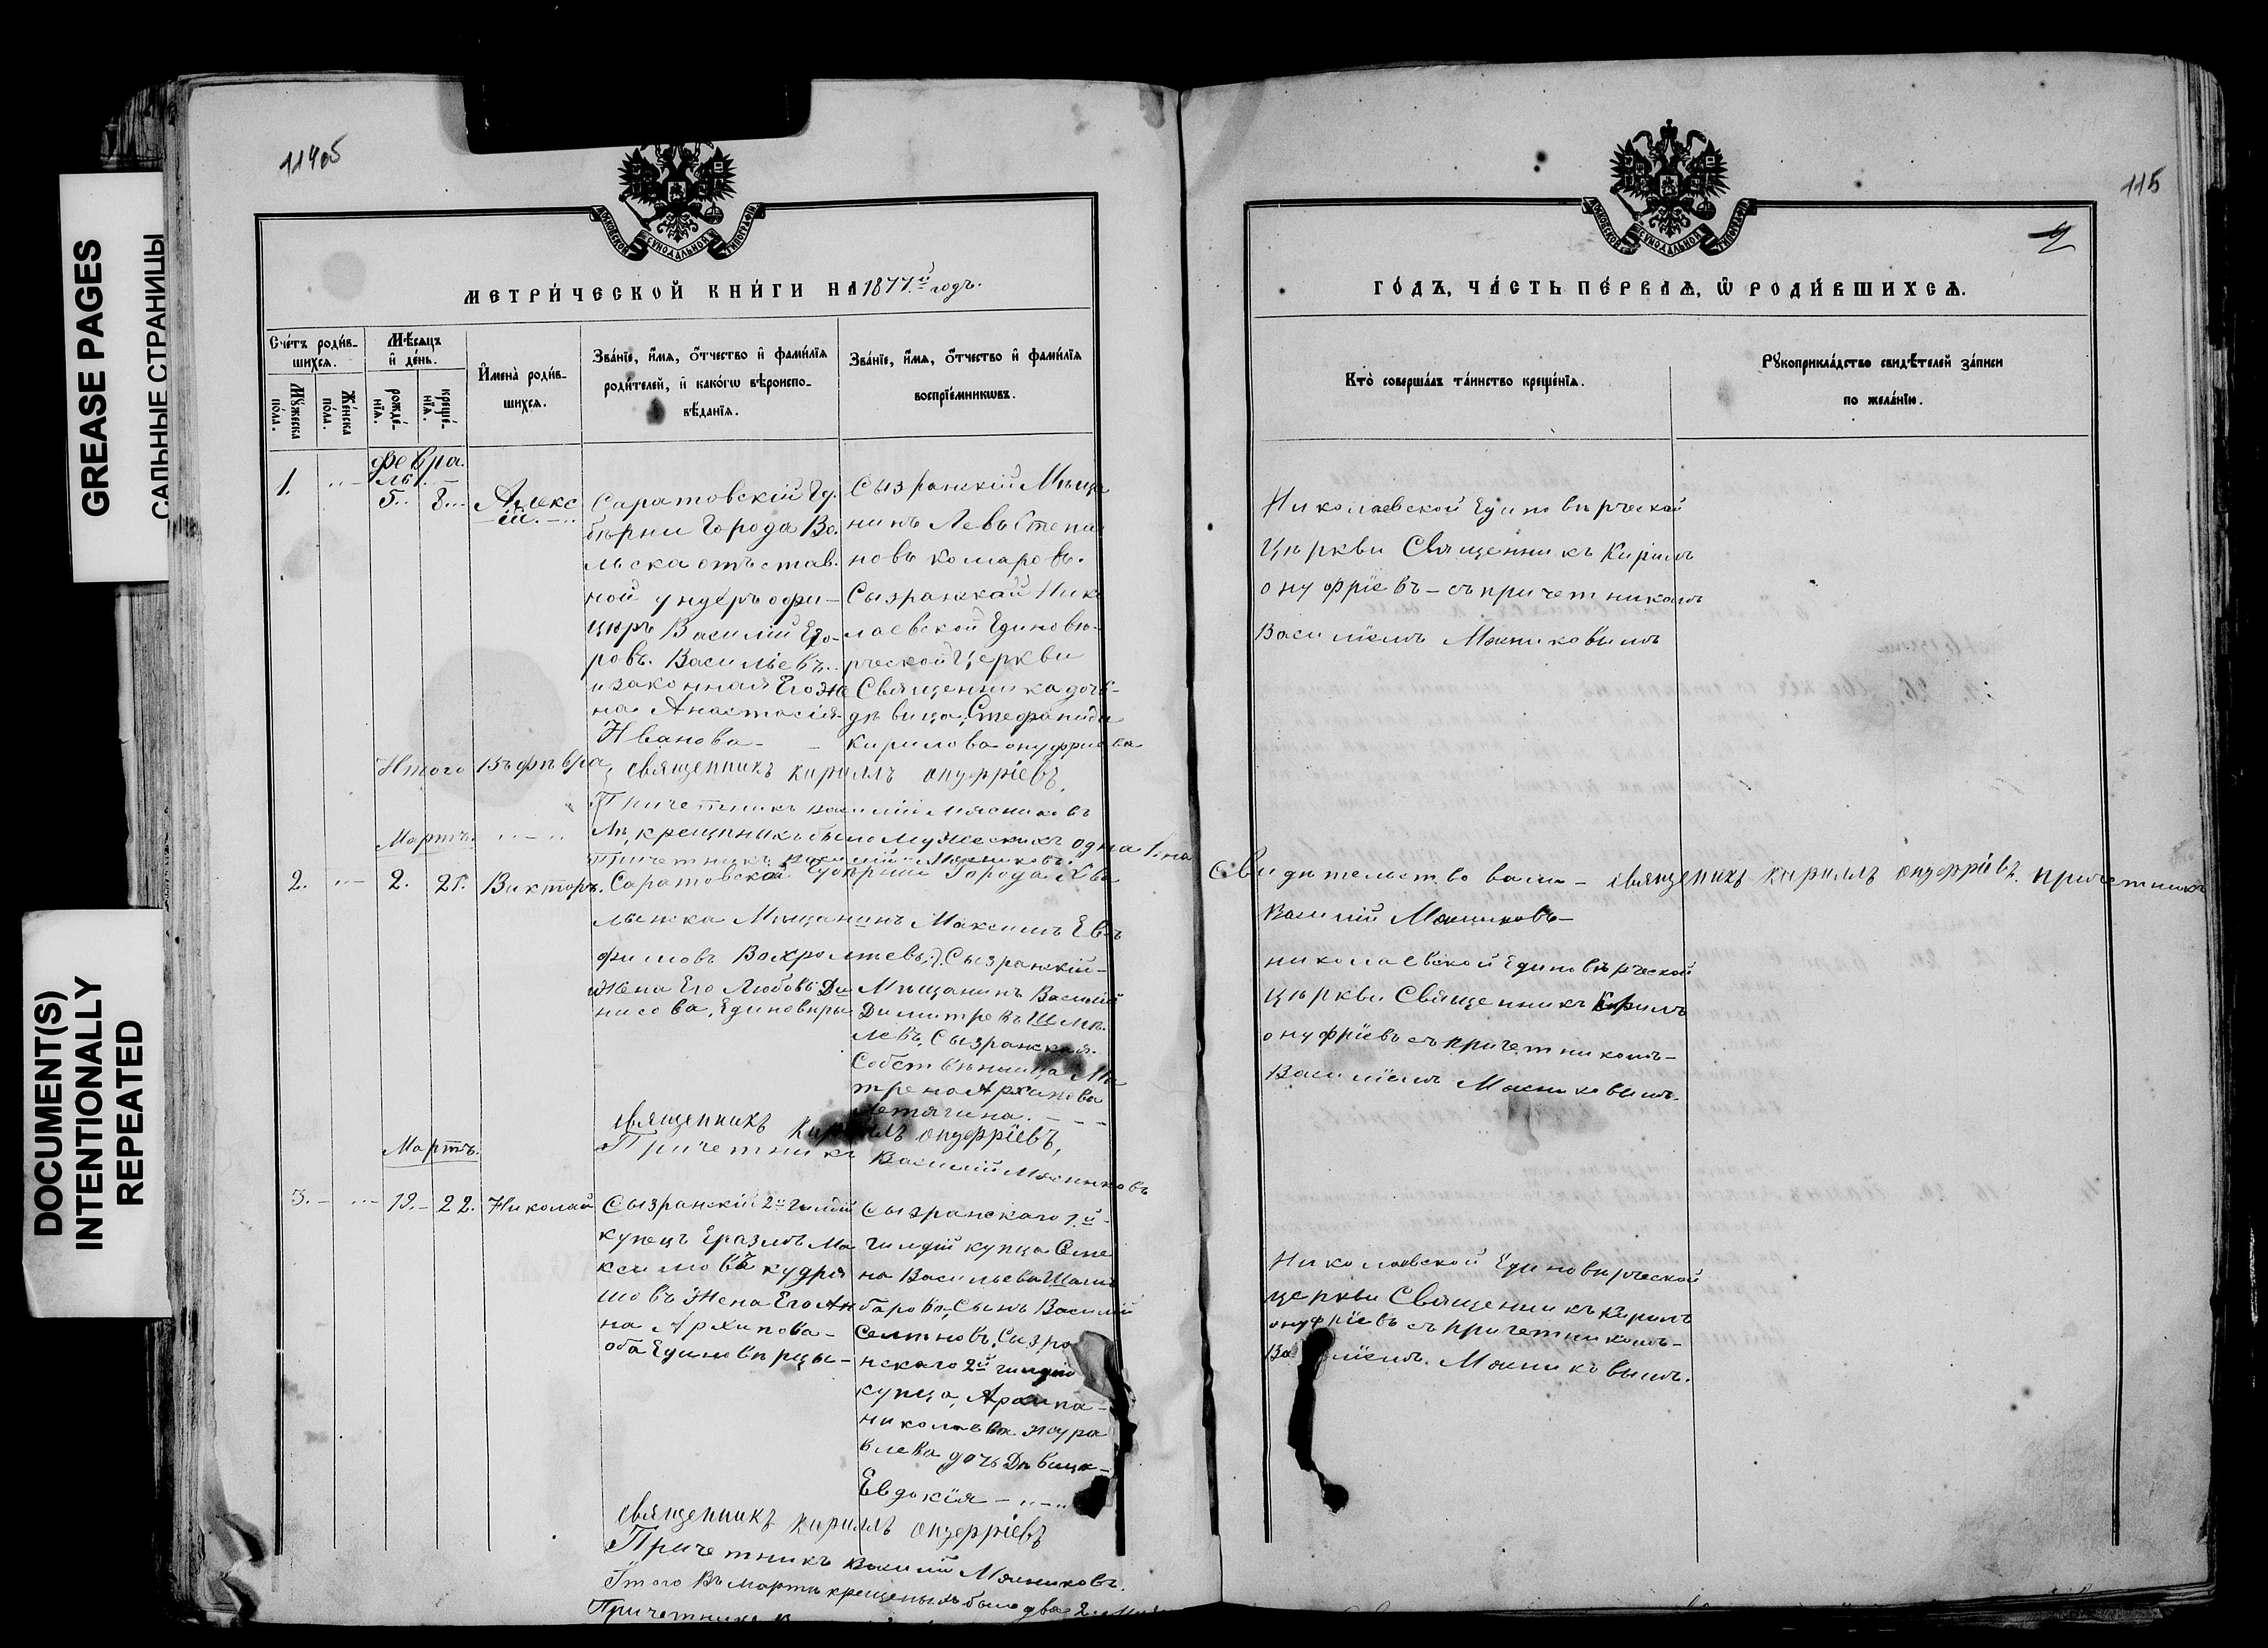 GREASE PAGES
САЛЬНЫЕ СТРАНИЦЫ
DOCUMENT(S)
INTENTIONALLY
REPEATED
115
МОСКОВСКОЙ СѴНОДАЛЬНОЙ ТИПОГРАФІИ
МЕТРИ́ЧЕСКОЙ КНИ́ГИ НА 1877й годъ.
Сче́тъ роди́в-
шихсѧ.
Мꙋ́жеска по́ла.
Же́нска по́ла.
Мѣ́сѧцъ
и҆ де́нь.
рожде́-
нїѧ.
креще́-
нїѧ.
И҆мена̀ роди́в-
шихсѧ.
Зва́нїе, и҆́мѧ, ѻ҆́тчество и҆ фами́лїѧ
роди́телей, и҆ како́гѡ вѣроиспо-
вѣ́данїѧ.
Зва́нїе, и҆́мѧ, ѻ҆́тчество и҆ фами́лїѧ
воспрїе́мникѡвъ.
Февра.
ль.
1. 5. 8. Алекс
ій.
Саратовскій Гу.
бѣрни Города Во.
льска отъстав.
ной ундеръ офи-
цѣръ Василій Его-
ровъ. Васильевъ.
и законная Его же
на Анастасія
Иванова-
Сызранскій Мѣща
нинъ Левъ Степа
новъ комаровъ.
Сызранскай Нико
лаевской Единовѣ-
рческой Церкви
Священника дочь-
дѣвица, Стефанида
Кирилова онуфриева
Итого въ фѣвра
священникъ кириллъ онуфріевъ,
Причетникъ василій Мясниковъ
Мартъ.
крещиникъ было Мужескихъ одна 1. на
Причетникъ василій Мясниковъ.
2. 2. 21. Викторъ. Саратовской Губѣрніи Города Хва
лынска Мѣщанинъ Максимъ Ев
фимовъ Вахромѣевъ,
Жена Его Любовь Ди
нисова, Единовѣры
Сызранскій-
Мѣщанинъ Василій
Димитревъ Шмѣ.
левъ, Сызранская.
Собствѣнница Ма
трена Архипова
священникъ кириллъ онуфріевъ,
Причетникъ Василій Мясниковъ
Мартъ.
3. 19. 22. Николай
Сызранскій 2й гилдій
купецъ Еразмъ Ма
ксимовъ кудря
шовъ Жена Его Ан
на Архипова-
оба Единовѣрцы-
Сызранскаго 1.й
гилдій купца Семе
на Васильева Шам
барова, Сынъ Василій
Семѣновъ, Сызра
нскаго 2й гилдій
купца, Архипа-
николаева жура
влева дочь Дѣвица-
Евдокія
священникъ кириллъ онуфріевъ
Причетникъ василій Мясниковъ.
Итого Въ мартѣ крещеныхъ было два 2.
Причетникъ
115
МОСКОВСКОЙ СѴНОДАЛЬНОЙ ТИПОГРАФІИ
ГО́ДЪ, ЧА́СТЬ ПЕ́РВАѦ, Ѽ РОДИ́ВШИХСѦ.
Кто̀ соверша́лъ та́инство креще́нїѧ.
Рꙋкоприкла́дство свидѣ́телей за́писи
по жела́нїю.
Николаевской Единовѣрческой
Цѣркви Священникъ Кирилъ
онуфріевъ-съ причетникомъ
Василіемъ Мясниковымъ
Свидѣтельствовали - священикъ кириллъ онуфріевъ. причетникъ
Василій Мясниковъ-
николаевской Единовѣрческой
Цѣркви Священникъ Кирилъ
онуфріевъ съ причетникомъ-
Василіемъ Мясниковымъ.
Николаевской Единовѣрческой
церкви Священникъ Кирилъ
онуфріевъ съ причетникомъ-
Мясниковымъ.